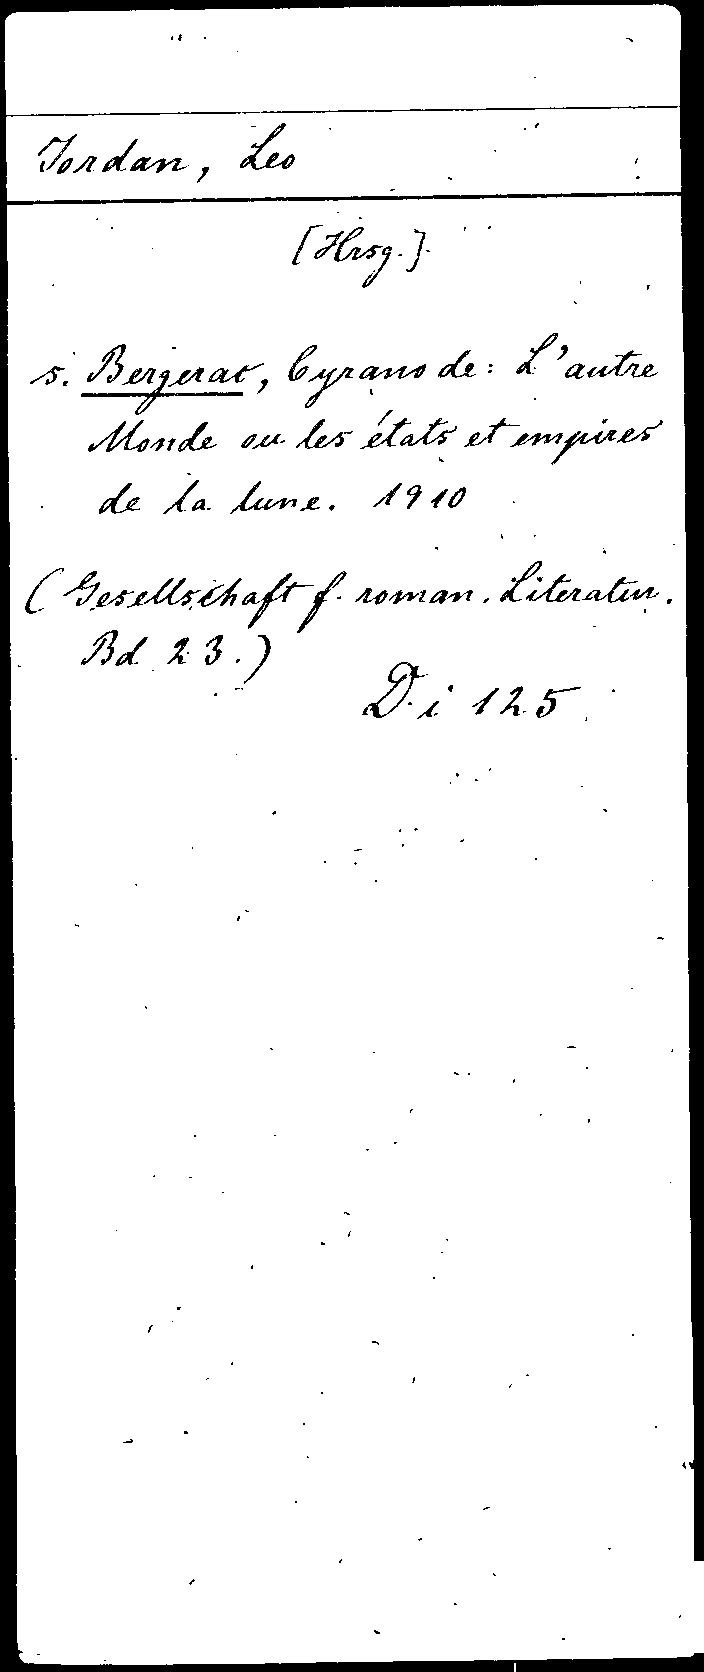 Jordan, Leo
[Hrsg.]
s. Bergerac, Cyrano de: L'autre
Monde ou les états et empires
de la lune. 1910
(Gesellschaft f. roman. Literatur.
Bd 23.)
Di 125